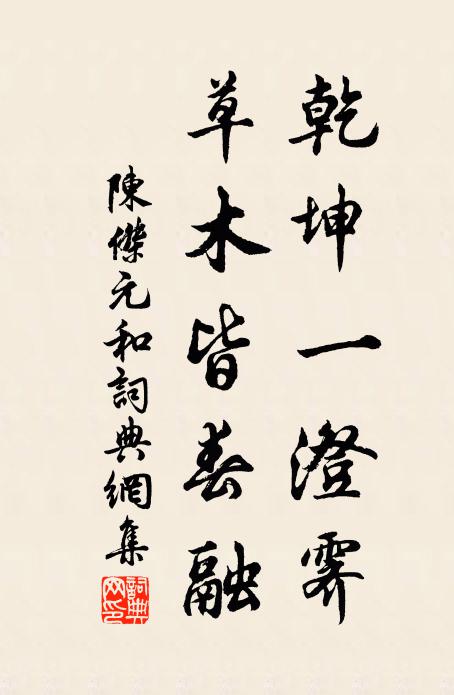 乾坤一澄霽
草木皆春融
陳傑元和詞典網集
詞典網印